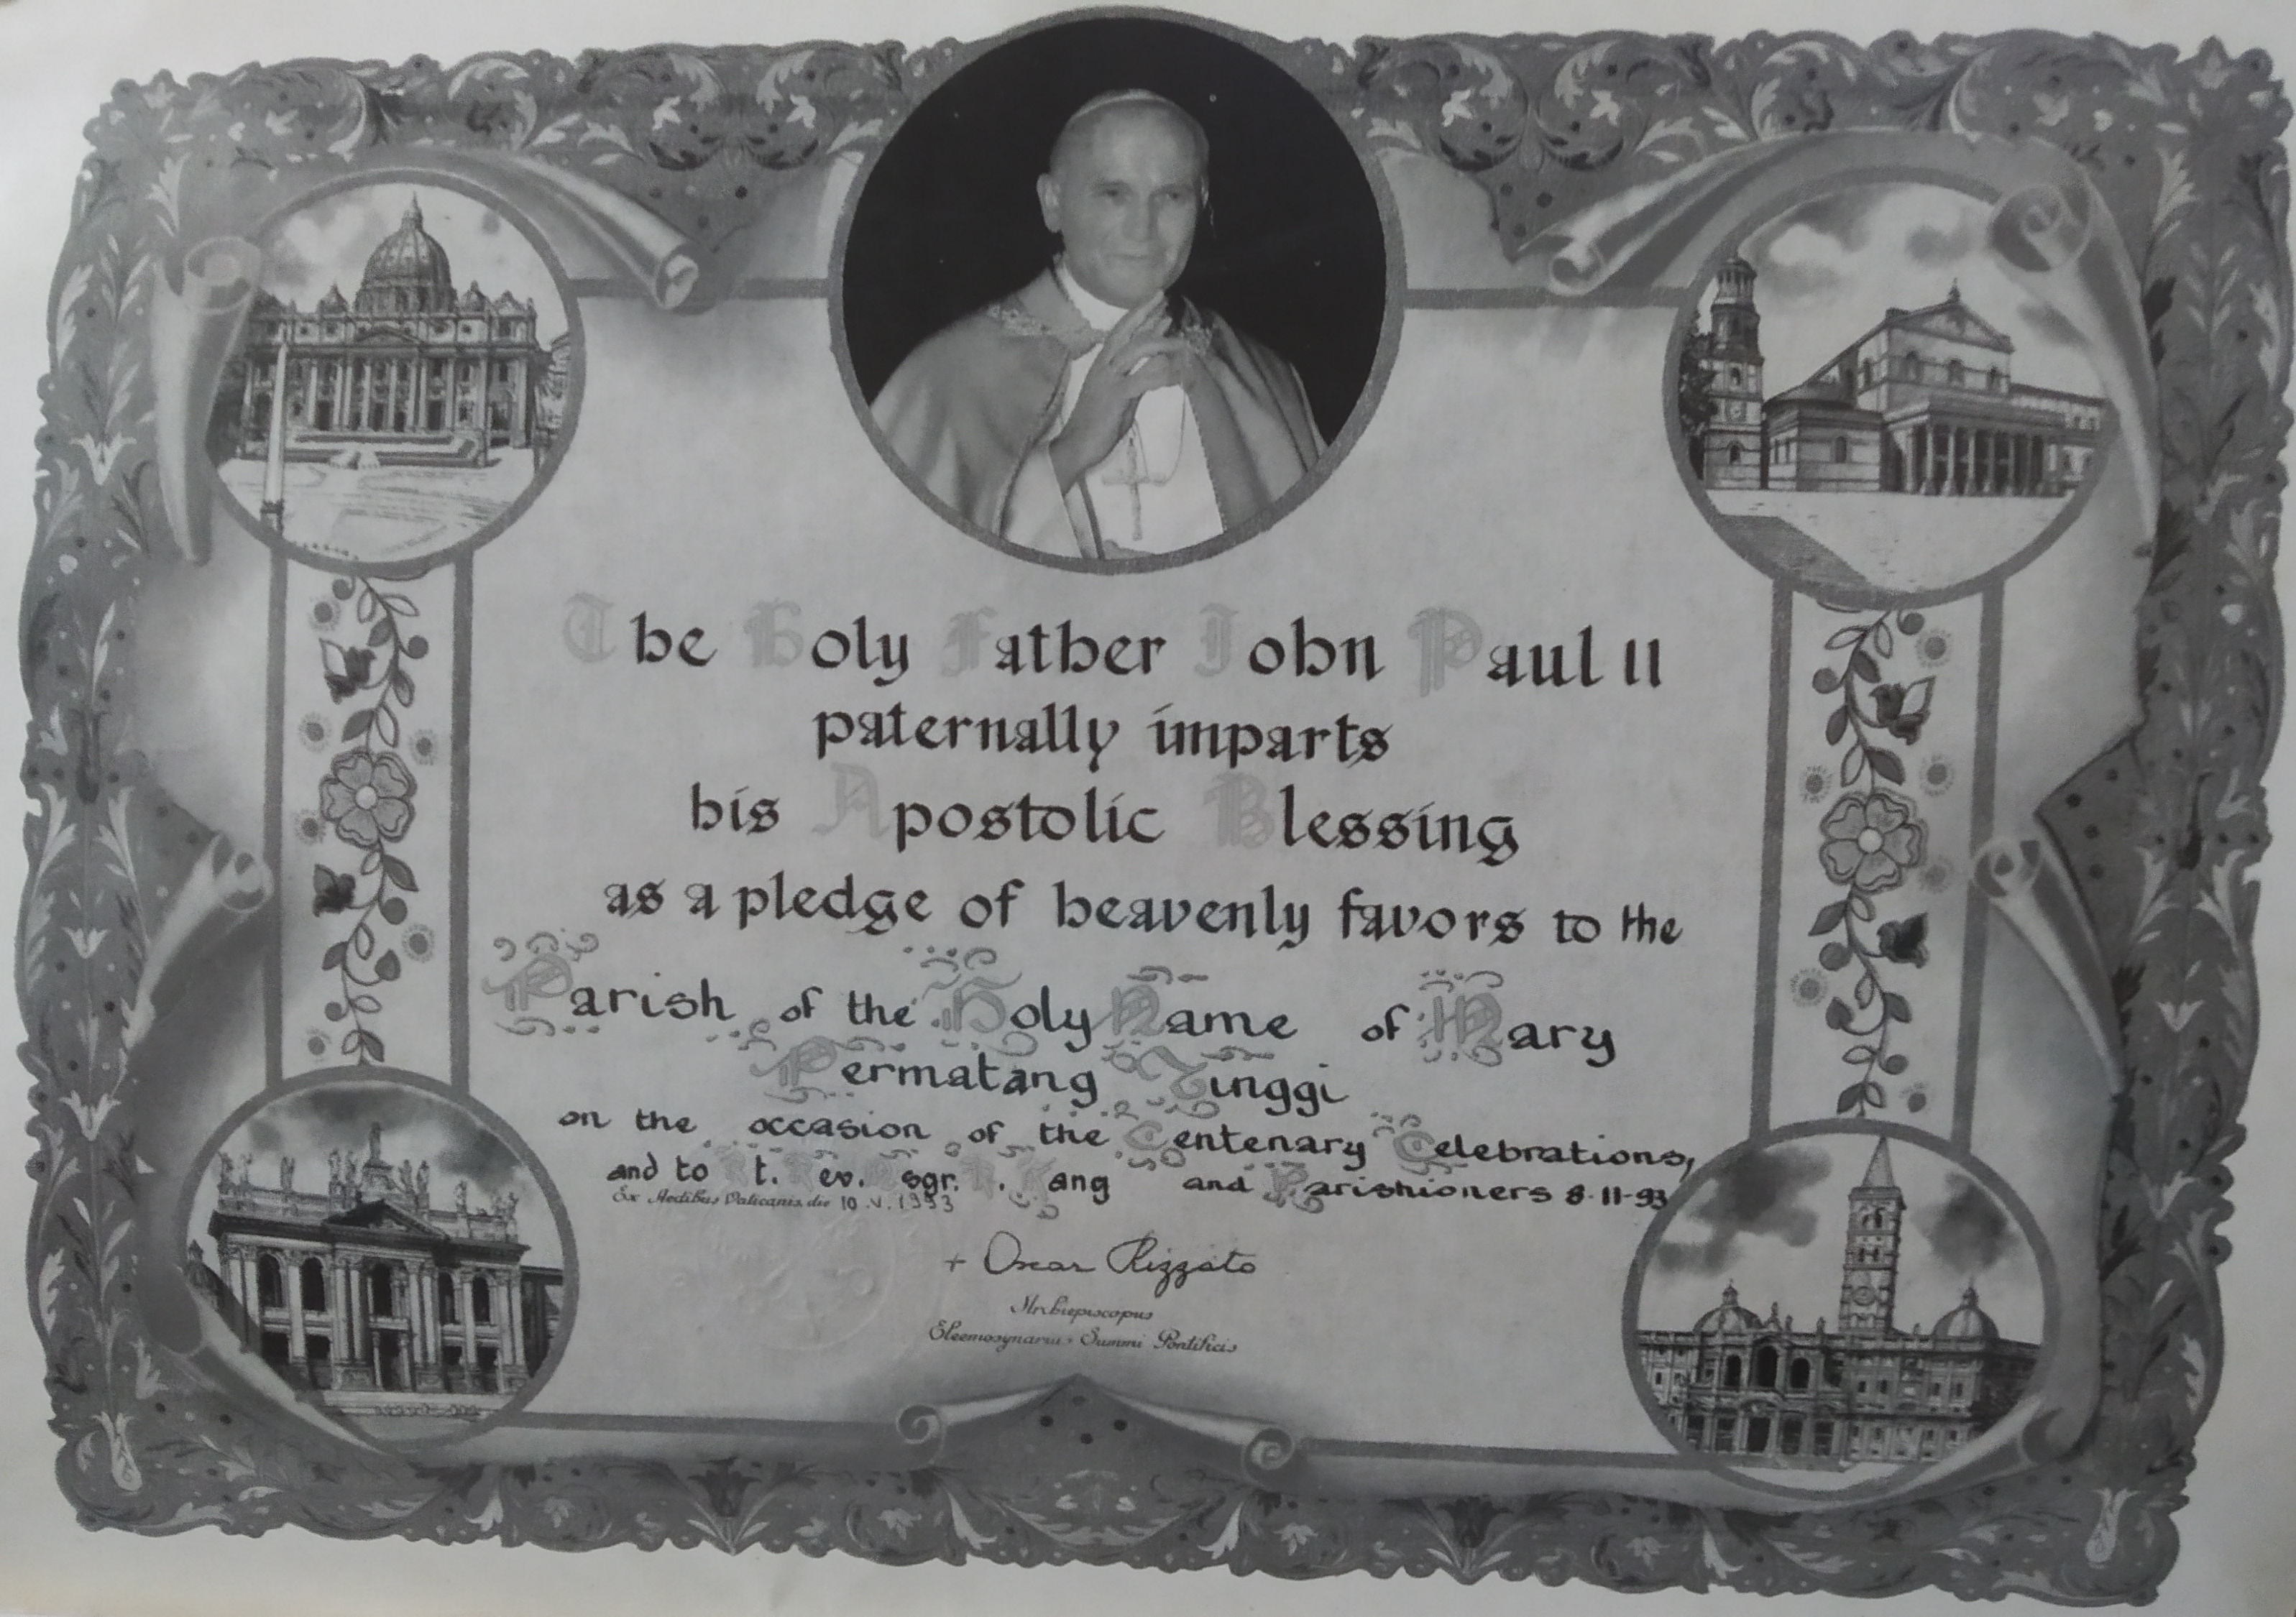 The Holy Father John Paul II
paternally imparts
his Apostolic Blessing
as a pledge of heavenly favors to the
Parish of the Holy Name of Mary
Permatang Tinggi
on the occasion of the Centenary Celebrations,
and to Rt. Rev. Msgr. Kang and Parishioners 8-11-93
Ex Aedibus Vaticanis, die 10.V.1993
+ Oscar Rizzato
Archiepiscopus
Eleemosynarius Summi Pontificis